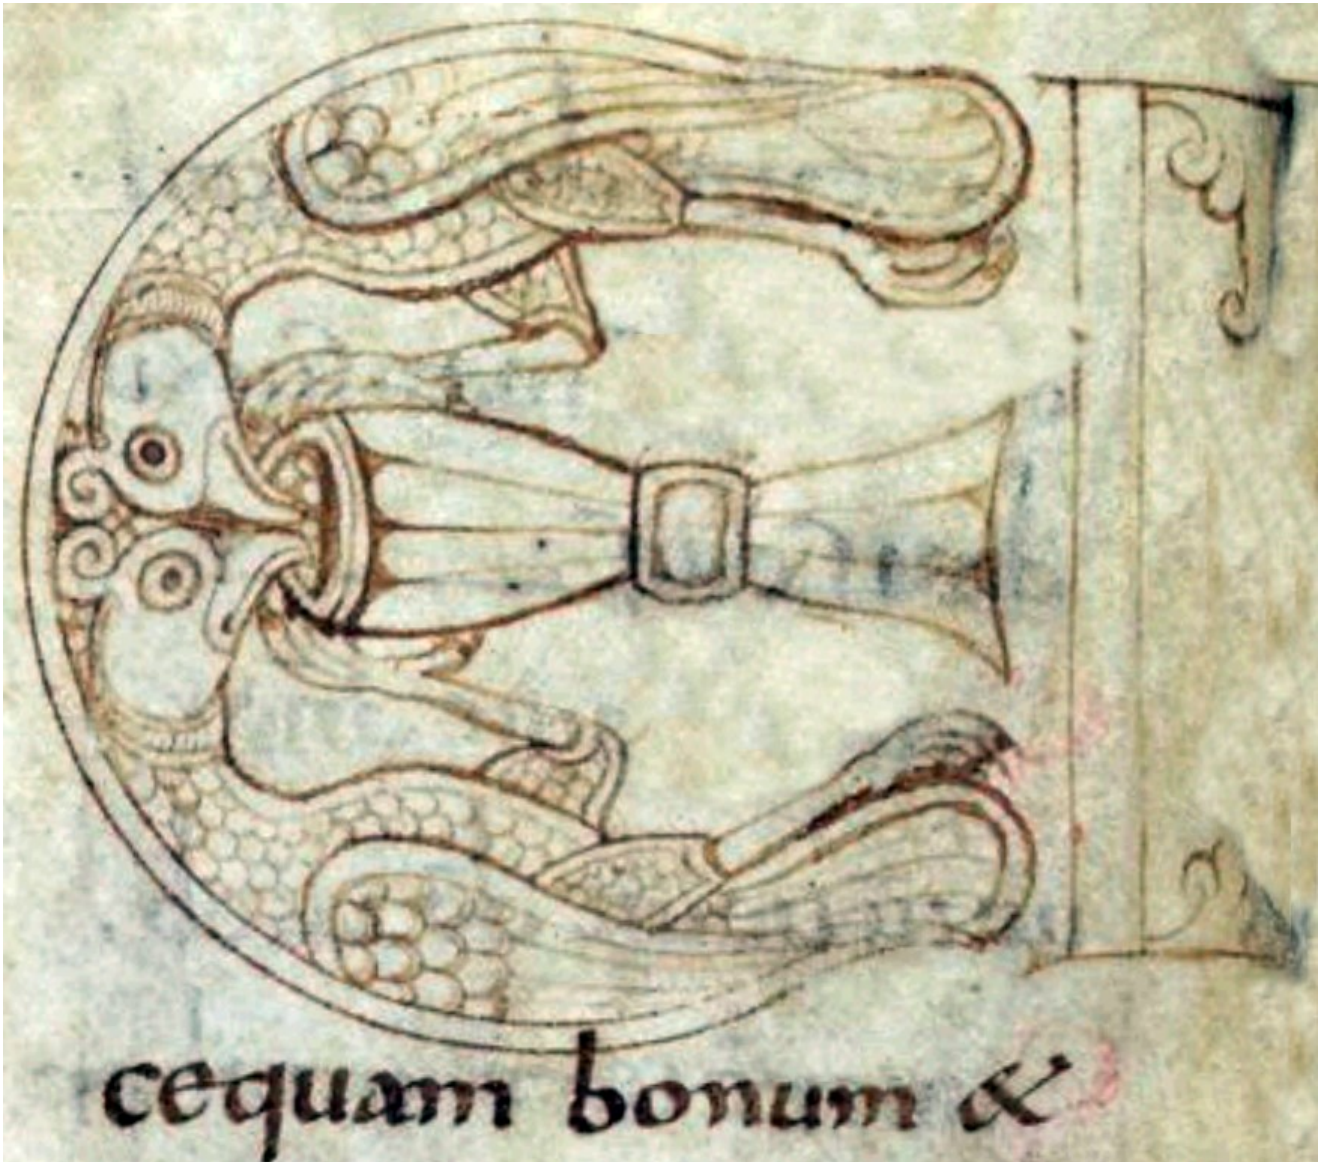 EC
cequam bonum &